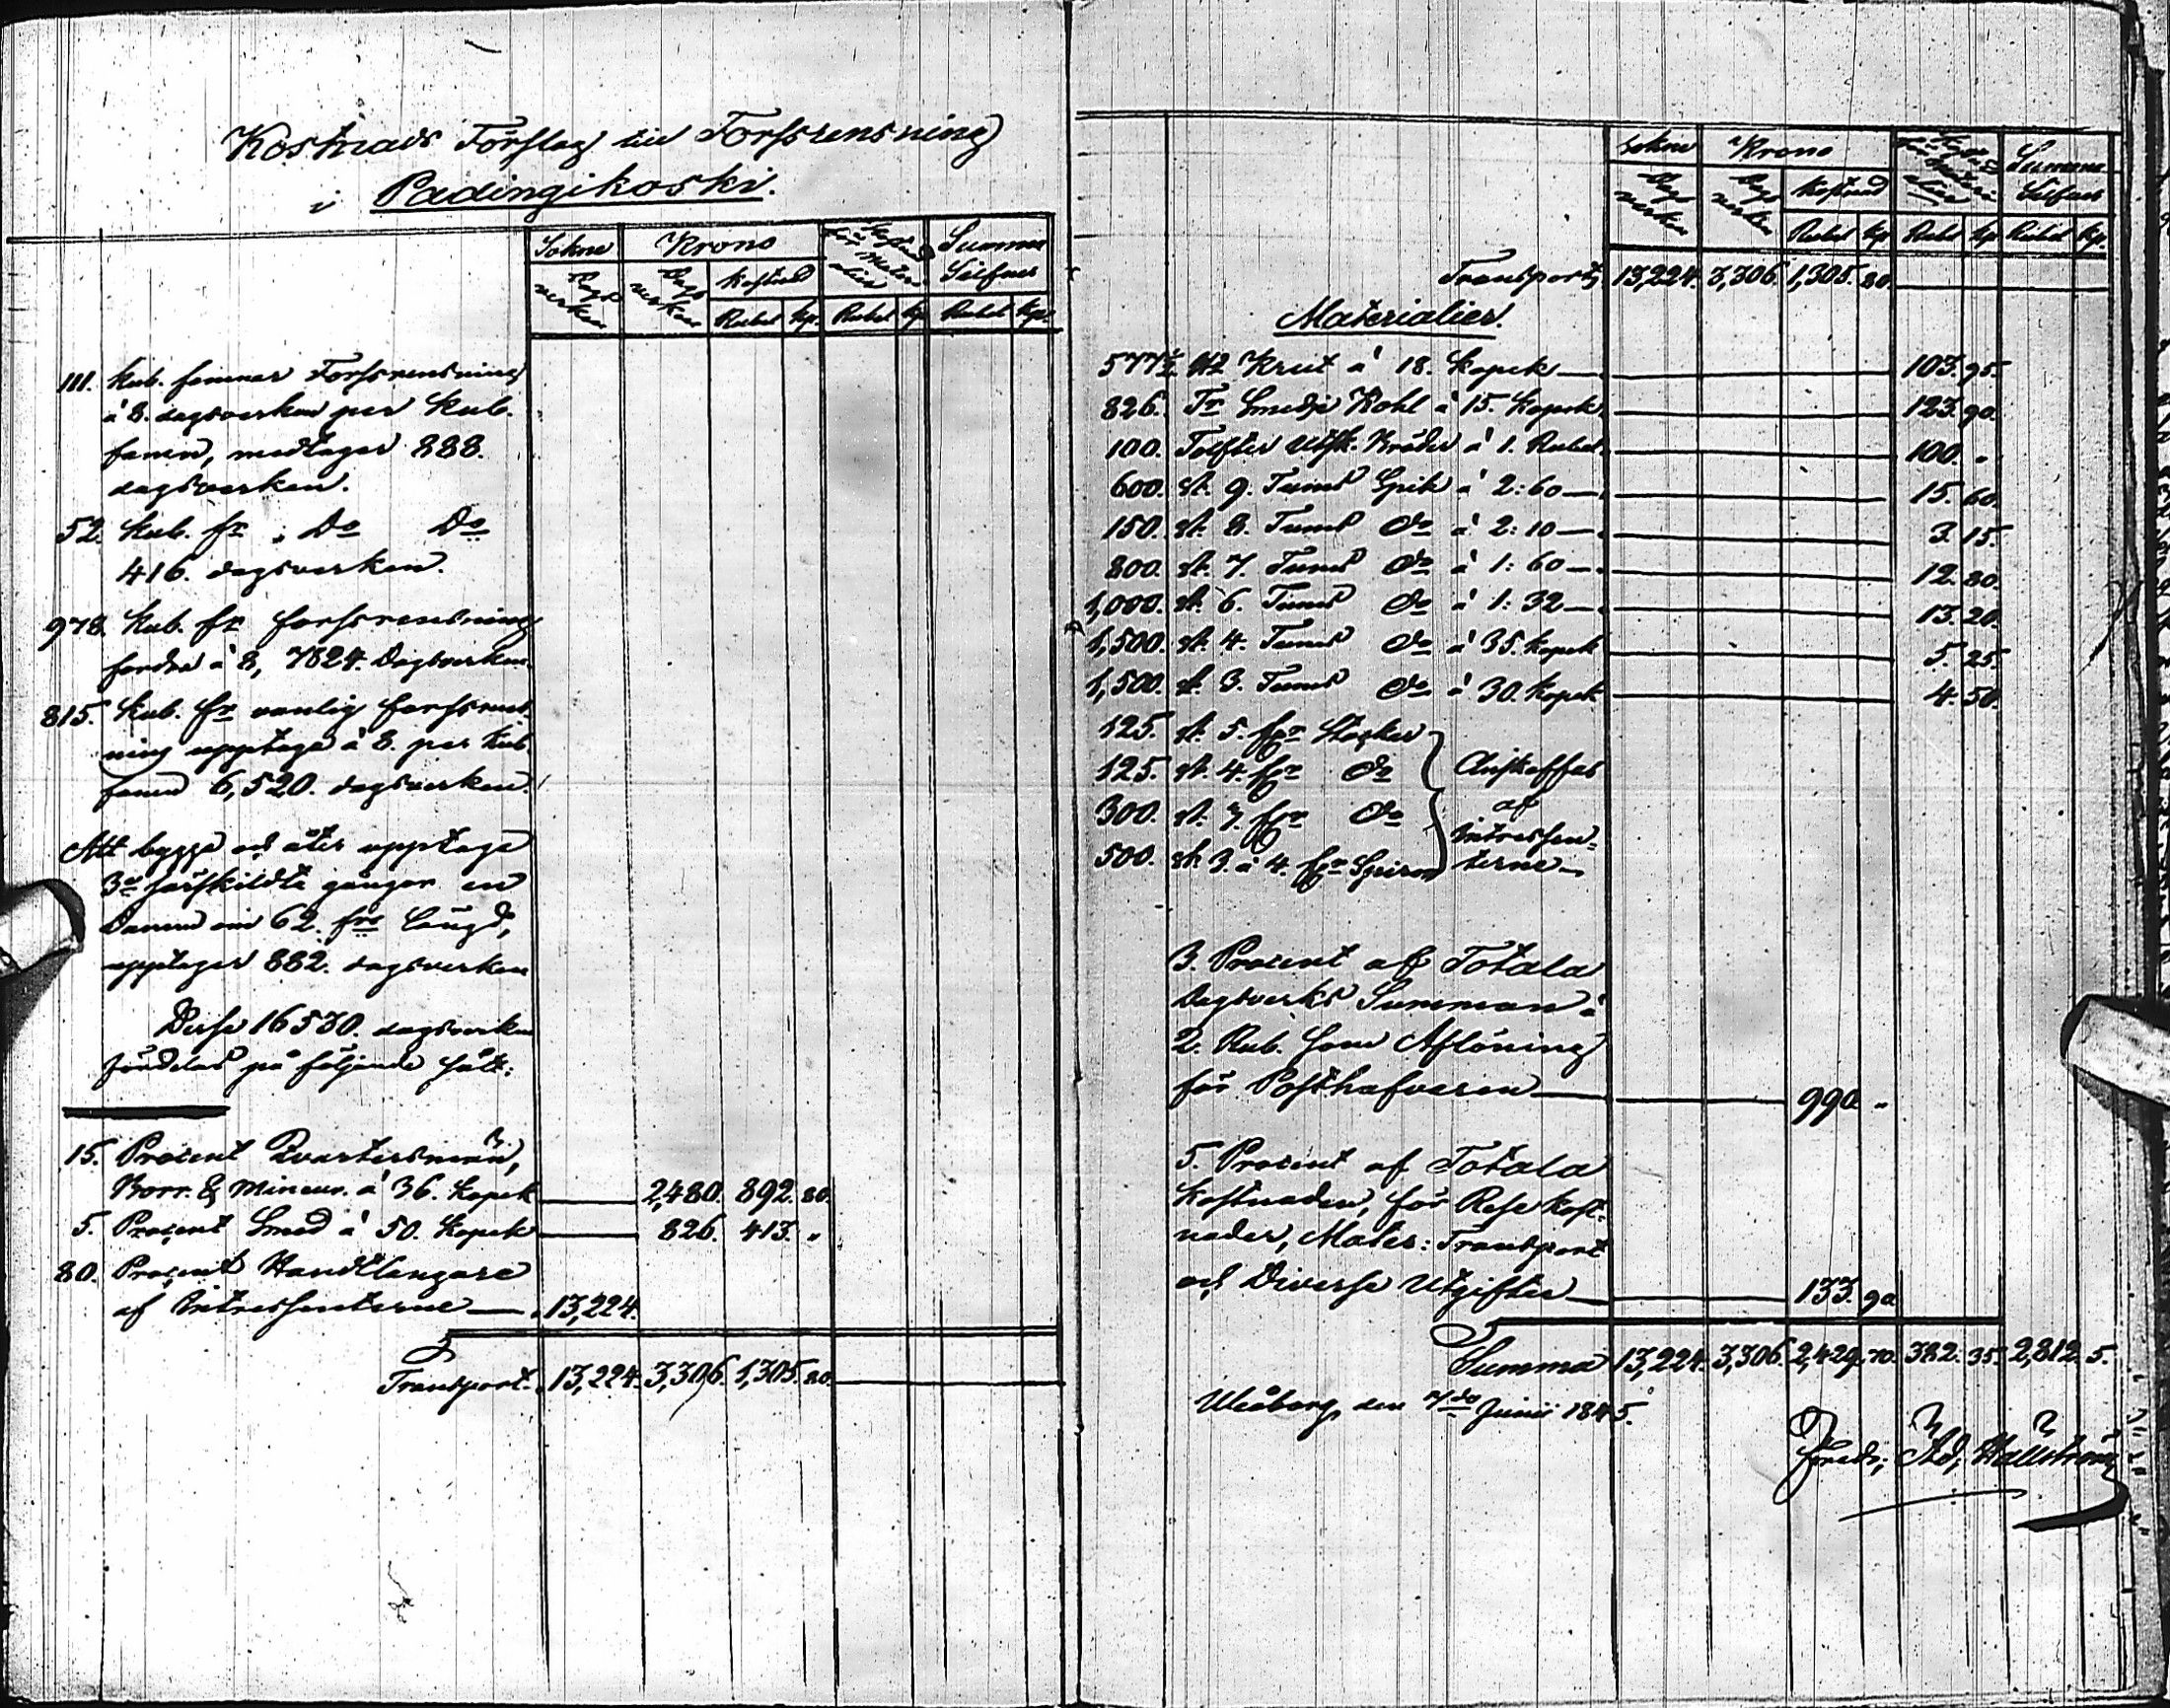 Kostnads Förslag till Forssrensning
i Padingikoski.
Sokne Krono Kostnad för Materialier Summa Silfver
Dags verken Dags verken Kostnad
Rubel kp. Rubel kp. Rubel kp.
111. Kub. famnar Forssrensning
à 8. dagsverken per Kub.
famn, medtager 888.
dagsverken.
52. Kub. fr. Do Do
416. dagsverken.
978. Kub. fr forssrensning
fordra à 8, 7824. Dagsverken.
815. Kub. fr vanlig forssrens-
ning upptaga à 8. per Kub.
famn 6,520. dagsverken.
Att bygga och åter upptaga
3e särskildte gångor en
Damm om 62. frs längd,
upptager 882. dagsverken
Desse 16530. dagsverken
fördelas på följande sätt:
15. Procent Qvartersmän,
Borr. & Mineur. à 36. Kopek 2,480. 892. 80.
5. Procent Smed à 50. Kopek 826. 413. „
80. Procent Handtlangare
af Intressenterne 13,224.
Transport. 13,224. 3,306. 1,305. 80.
Sokne Krono Summa Silfver
Dags verken Dags verken Kostnad
Rubel kp. Rubel kp. Rubel kp.
Transport 13,224. 3,306. 1,305. 80.
Materialier.
577½ ℔ Krut à 18. Kopek 103. 95.
826. Tr Smedje Kohl à 15. Kopek 123. 90.
100. Tolfter Utsk. Bräder à 1. Rubel. 100. „
600. st. 9. Tums Spik à 2:60 15. 60.
150. st. 8. Tums do à 2:10 3. 15.
800. st. 7. Tums do à 1:60 12. 80.
1,000. st. 6. Tums do à 1:32 13. 20.
1,500. st. 4. Tums do à 35. Kopek 5. 25.
1,500. st. 3. Tums do à 30. Kopek 4. 50.
125. st. 5. fr Stockar
125. st. 4. fr do Anskaffas
300. st. 7. fr do af Intressen-
500. st. 3. à 4. fr Spiror terne
3. Procent af Totala
Dagsverks Summan à
2. Rub. som Aflöning
för Posthafvaren 990 „
5. Procent af Totala
Kostnaden, för Rese kost-
nader, Mater: Transport
och Diverse Utgifter 133. 90
Summa 13,224. 3,306. 2,429. 70. 382. 35. 2,812. 5.
Uleåborg, den 7de Junii 1845.
Freds; Ad; Hällström